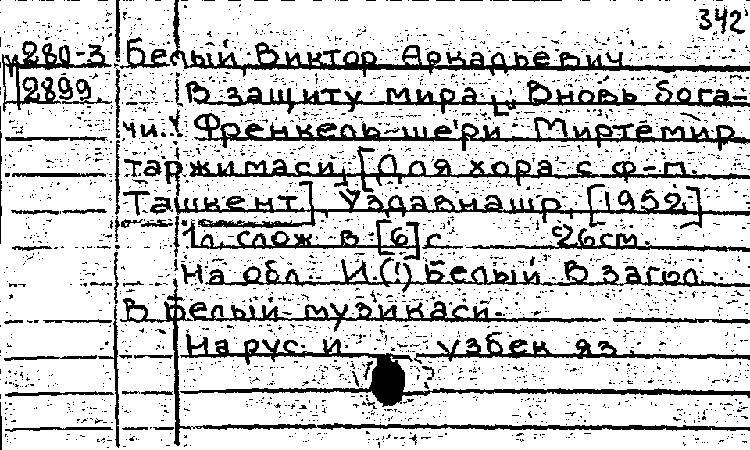 342
280-3 Белый, Виктор Аркадьевич
2899. В защиту мира. Вновь бога-
чи.. Френкель шеъри. Миртемир
таржимаси, [Для хора с ф-п.
Ташкент], Уздавнашр, [1952.]
1л. слож. в [6] с. 26см.
На обл. И.(!) Белый. В загол.
В Белый музикаси.
На рус. и узбек яз.